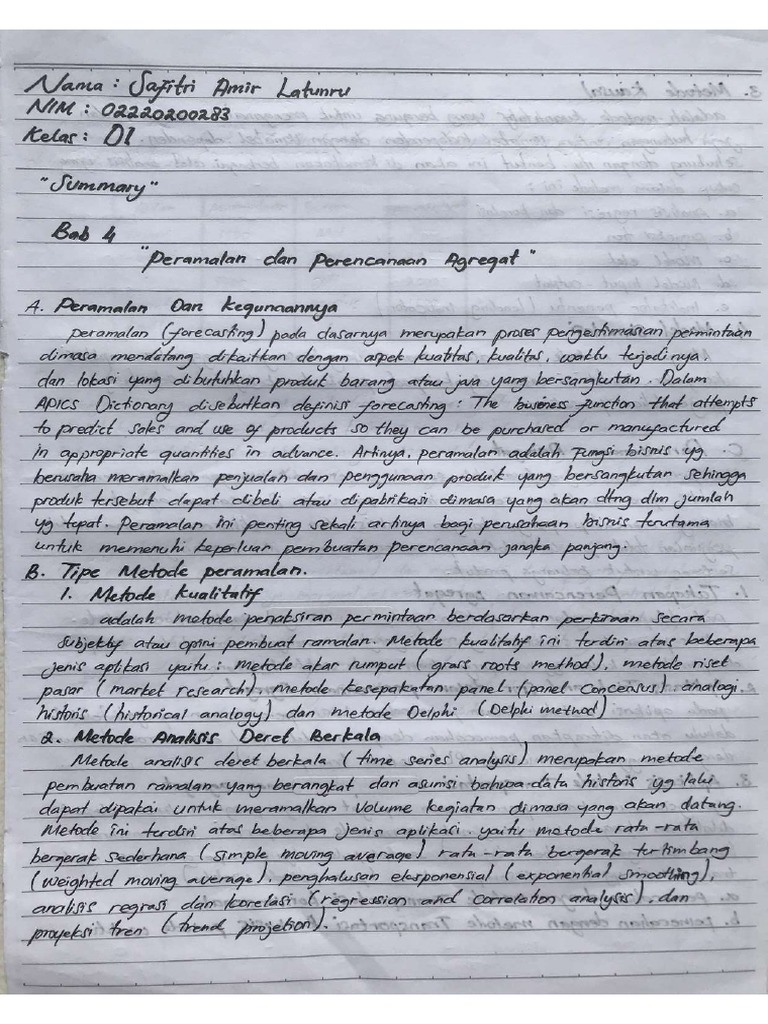 Nama : Safitri Amir Latunru
NIM : 02220200283
Kelas : D1
"Summary"
Bab 4
"Peramalan dan Perencanaan Agregat"
A. Peramalan Dan Kegunaannya
Peramalan (forecasting) pada dasarnya merupakan proses pengestimasian permintaan
dimasa mendatang dikaitkan dengan aspek kuatitas, kualitas, waktu terjadinya,
dan lokasi yang dibutuhkan produk barang atau java yang bersangkutan. Dalam
APICS Dictionary disebutkan definisi forecasting : The business function that attempts
to predict sales and use of products so they can be purchased or manufactured
in appropriate quantities in advance. Artinya, peramalan adalah Fungsi bisnis yg
berusaha meramalkan penjualan dan penggunaan produk yang bersangkutan sehingga
produk tersebut dapat dibeli atau dipabrikasi dimasa yang akan dtng dlm jumlah
yg tepat. Peramalan ini penting sekali artinya bagi perusahaan bisnis terutama
untuk memenuhi keperluan pembuatan perencanaan jangka panjang.
B. Tipe Metode peramalan.
1. Metode Kualitatif
adalah metode penaksiran permintaan berdasarkan perkiraan secara
subjektif atau opini pembuat ramalan. Metode kualitatif ini terdiri atas beberapa
jenis aplikasi yaitu : metode akar rumput (grass roots method), metode riset
pasar (market research), metode kesepakatan panel (panel concensus), analogi
historis (historical analogy) dan metode Delphi (Delphi method)
2. Metode Analisis Deret Berkala
Metode analisis deret berkala (time series analysis) merupakan metode
pembuatan ramalan yang berangkat dari asumsi bahwa data historis yg lalu
dapat dipakai untuk meramalkan volume kegiatan dimasa yang akan datang.
Metode ini terdiri atas beberapa jenis aplikasi yaitu metode rata-rata
bergerak sederhana (simple moving average) rata-rata bergerak tertimbang
(weighted moving average), penghalusan eksponensial (exponential smoothing),
analisis regrasi dan korelasi (regression and correlation analysis), dan
proyeksi tren (trend projetion).